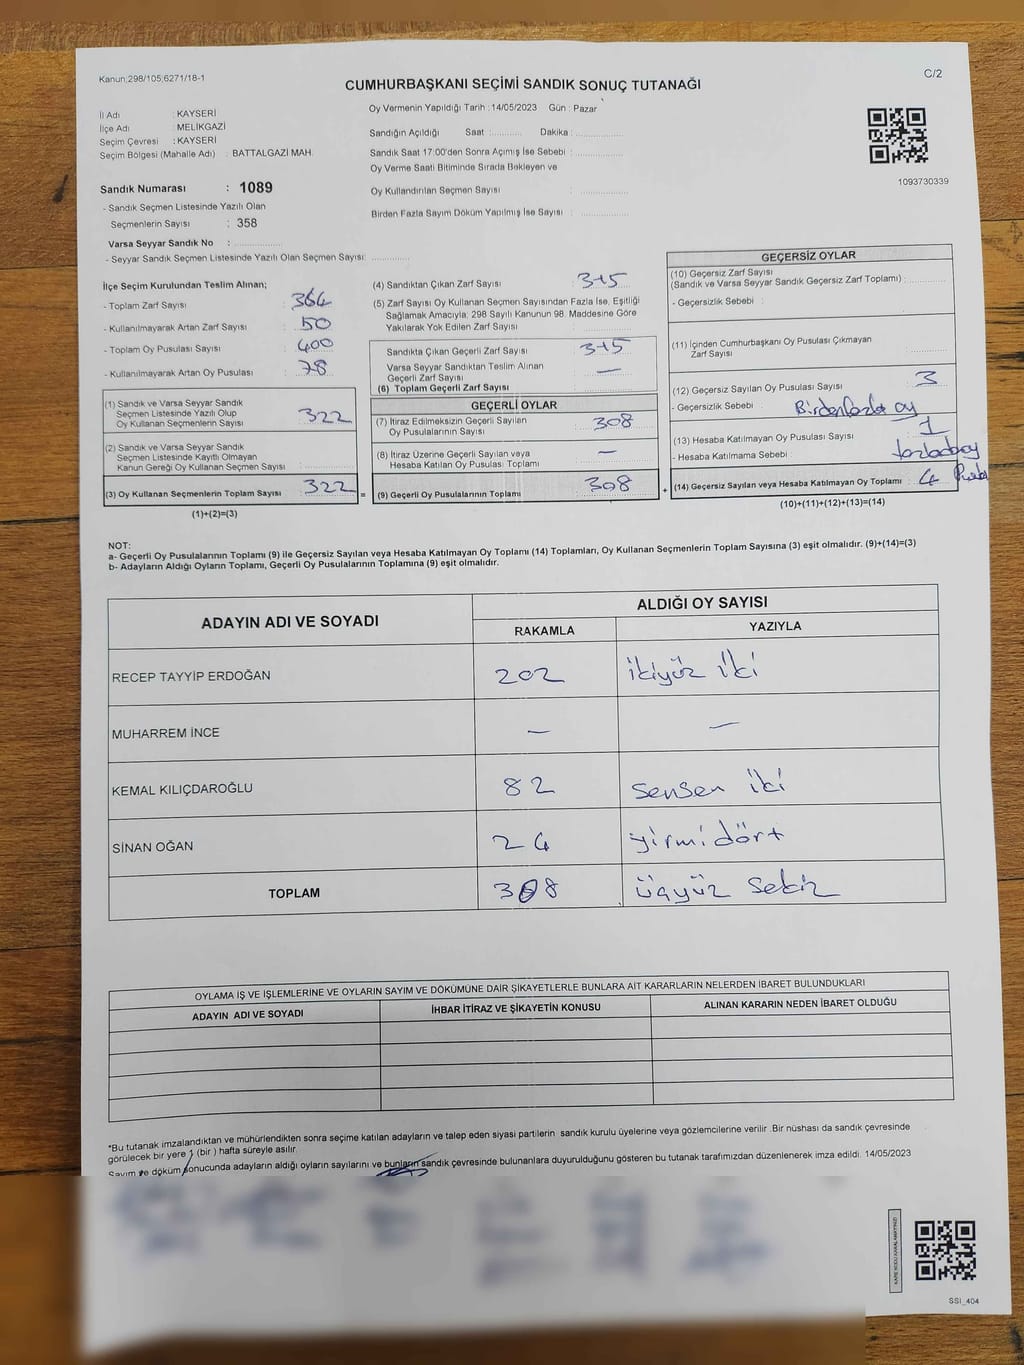 Kanun;298/105;6271/18-1
C/2
CUMHURBAŞKANI SEÇİMİ SANDIK SONUÇ TUTANAĞI
İl Adı : KAYSERİ
İlçe Adı : MELİKGAZİ
Seçim Çevresi : KAYSERİ
Seçim Bölgesi (Mahalle Adı) : BATTALGAZİ MAH.
Sandık Numarası : 1089
- Sandık Seçmen Listesinde Yazılı Olan
Seçmenlerin Sayısı : 358
Varsa Seyyar Sandık No : ............
- Seyyar Sandık Seçmen Listesinde Yazılı Olan Seçmen Sayısı: ............
Oy Vermenin Yapıldığı Tarih : 14/05/2023 Gün : Pazar
Sandığın Açıldığı Saat :.......... Dakika :..............
Sandık Saat 17:00'den Sonra Açımış İse Sebebi : ..............
Oy Verme Saati Bitiminde Sırada Bekleyen ve
Oy Kullandırılan Seçmen Sayısı : ..............
Birden Fazla Sayım Döküm Yapılmış İse Sayısı : ..............
1093730339
İlçe Seçim Kurulundan Teslim Alınan;
- Toplam Zarf Sayısı : 364
- Kullanılmayarak Artan Zarf Sayısı : 50
- Toplam Oy Pusulası Sayısı : 400
- Kullanılmayarak Artan Oy Pusulası : 78
(1) Sandık ve Varsa Seyyar Sandık
Seçmen Listesinde Yazılı Olup
Oy Kullanan Seçmenlerin Sayısı : 322
(2) Sandık ve Varsa Seyyar Sandık
Seçmen Listesinde Kayıtlı Olmayan
Kanun Gereği Oy Kullanan Seçmen Sayısı :
(3) Oy Kullanan Seçmenlerin Toplam Sayısı : 322 =
(1)+(2)=(3)
(4) Sandıktan Çıkan Zarf Sayısı : 315
(5) Zarf Sayısı Oy Kullanan Seçmen Sayısından Fazla İse, Eşitliği
Sağlamak Amacıyla; 298 Sayılı Kanunun 98. Maddesine Göre
Yakılarak Yok Edilen Zarf Sayısı :
Sandıkta Çıkan Geçerli Zarf Sayısı : 315
Varsa Seyyar Sandıktan Teslim Alınan
Geçerli Zarf Sayısı : —
(6) Toplam Geçerli Zarf Sayısı :
GEÇERLİ OYLAR
(7) İtiraz Edilmeksizin Geçerli Sayılan
Oy Pusulalarının Sayısı : 308
(8) İtiraz Üzerine Geçerli Sayılan veya
Hesaba Katılan Oy Pusulası Toplamı : —
(9) Geçerli Oy Pusulalarının Toplamı : 308 +
GEÇERSİZ OYLAR
(10) Geçersiz Zarf Sayısı
(Sandık ve Varsa Seyyar Sandık Geçersiz Zarf Toplamı) :
- Geçersizlik Sebebi :
(11) İçinden Cumhurbaşkanı Oy Pusulası Çıkmayan
Zarf Sayısı :
(12) Geçersiz Sayılan Oy Pusulası Sayısı : 3
- Geçersizlik Sebebi : Birdenfazla oy
(13) Hesaba Katılmayan Oy Pusulası Sayısı : 1
- Hesaba Katılmama Sebebi :
(14) Geçersiz Sayılan veya Hesaba Katılmayan Oy Toplamı : 4
(10)+(11)+(12)+(13)=(14)
NOT:
a- Geçerli Oy Pusulalarının Toplamı (9) ile Geçersiz Sayılan veya Hesaba Katılmayan Oy Toplamı (14) Toplamları, Oy Kullanan Seçmenlerin Toplam Sayısına (3) eşit olmalıdır. (9)+(14)=(3)
b- Adayların Aldığı Oyların Toplamı, Geçerli Oy Pusulalarının Toplamına (9) eşit olmalıdır.
ADAYIN ADI VE SOYADI ALDIĞI OY SAYISI
RAKAMLA YAZIYLA
RECEP TAYYİP ERDOĞAN 202 ikiyüz iki
MUHARREM İNCE — —
KEMAL KILIÇDAROĞLU 82 sensen iki
SİNAN OĞAN 24 yirmi dört
TOPLAM 308 üçyüz sekiz
OYLAMA İŞ VE İŞLEMLERİNE VE OYLARIN SAYIM VE DÖKÜMÜNE DAİR ŞİKAYETLERLE BUNLARA AİT KARARLARIN NELERDEN İBARET BULUNDUKLARI
ADAYIN ADI VE SOYADI İHBAR İTİRAZ VE ŞİKAYETİN KONUSU ALINAN KARARIN NEDEN İBARET OLDUĞU
*Bu tutanak imzalandıktan ve mühürlendikten sonra seçime katılan adayların ve talep eden siyasi partilerin sandık kurulu üyelerine veya gözlemcilerine verilir .Bir nüshası da sandık çevresinde
görülecek bir yere 1 (bir ) hafta süreyle asılır.
Sayım ve döküm sonucunda adayların aldığı oyların sayılarını ve bunların sandık çevresinde bulunanlara duyurulduğunu gösteren bu tutanak tarafımızdan düzenlenerek imza edildi. 14/05/2023
SSI_404